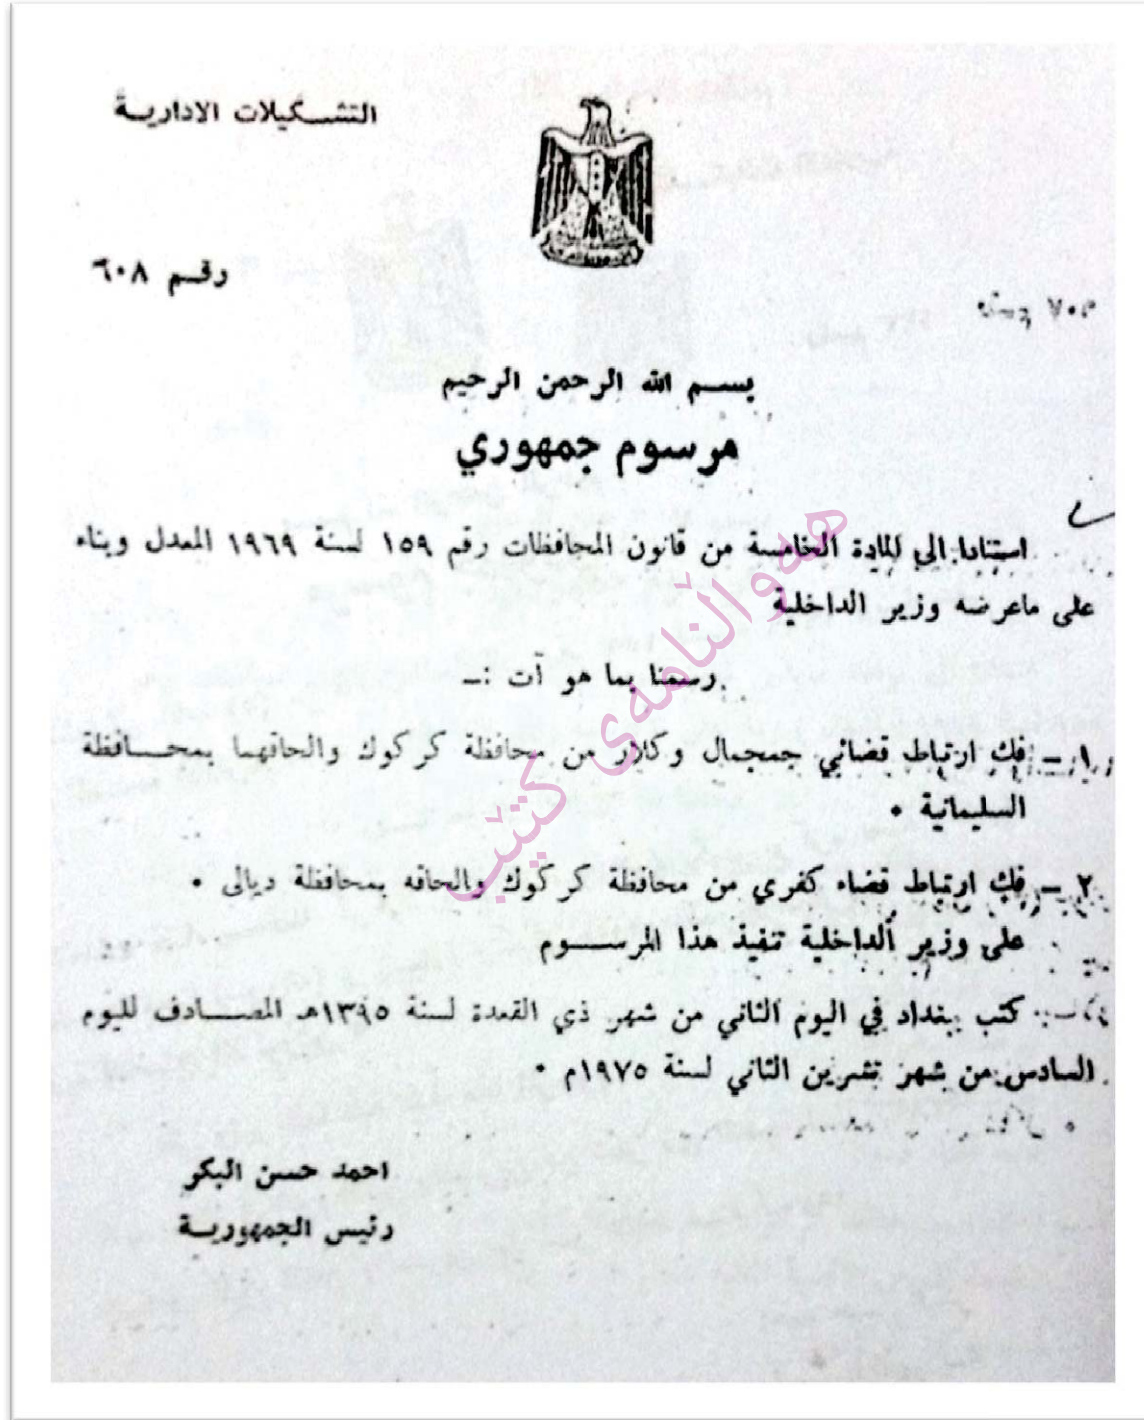 التشكيلات الادارية
رقم ٦٠٨
بسم الله الرحمن الرحيم
مرسوم جمهوري
استنادا الى المادة الخامسة من قانون المحافظات رقم ١٥٩ لسنة ١٩٦٩ المعدل وبناء
على ماعرضه وزير الداخلية
رسمنا بما هو آت :ــ
١ ــ فك ارتباط قضائي جمجمال وكلار من محافظة كركوك والحاقهما بمحافظة
السليمانية ٠
٢ ــ فك ارتباط قضاء كفري من محافظة كركوك والحاقه بمحافظة ديالى ٠
على وزير الداخلية تنفيذ هذا المرسوم
كتب ببغداد في اليوم الثاني من شهر ذي القعدة لسنة ١٣٩٥هـ المصادف لليوم
السادس من شهر تشرين الثاني لسنة ١٩٧٥م ٠
احمد حسن البكر
رئيس الجمهورية
هەواڵنامەی کتێب